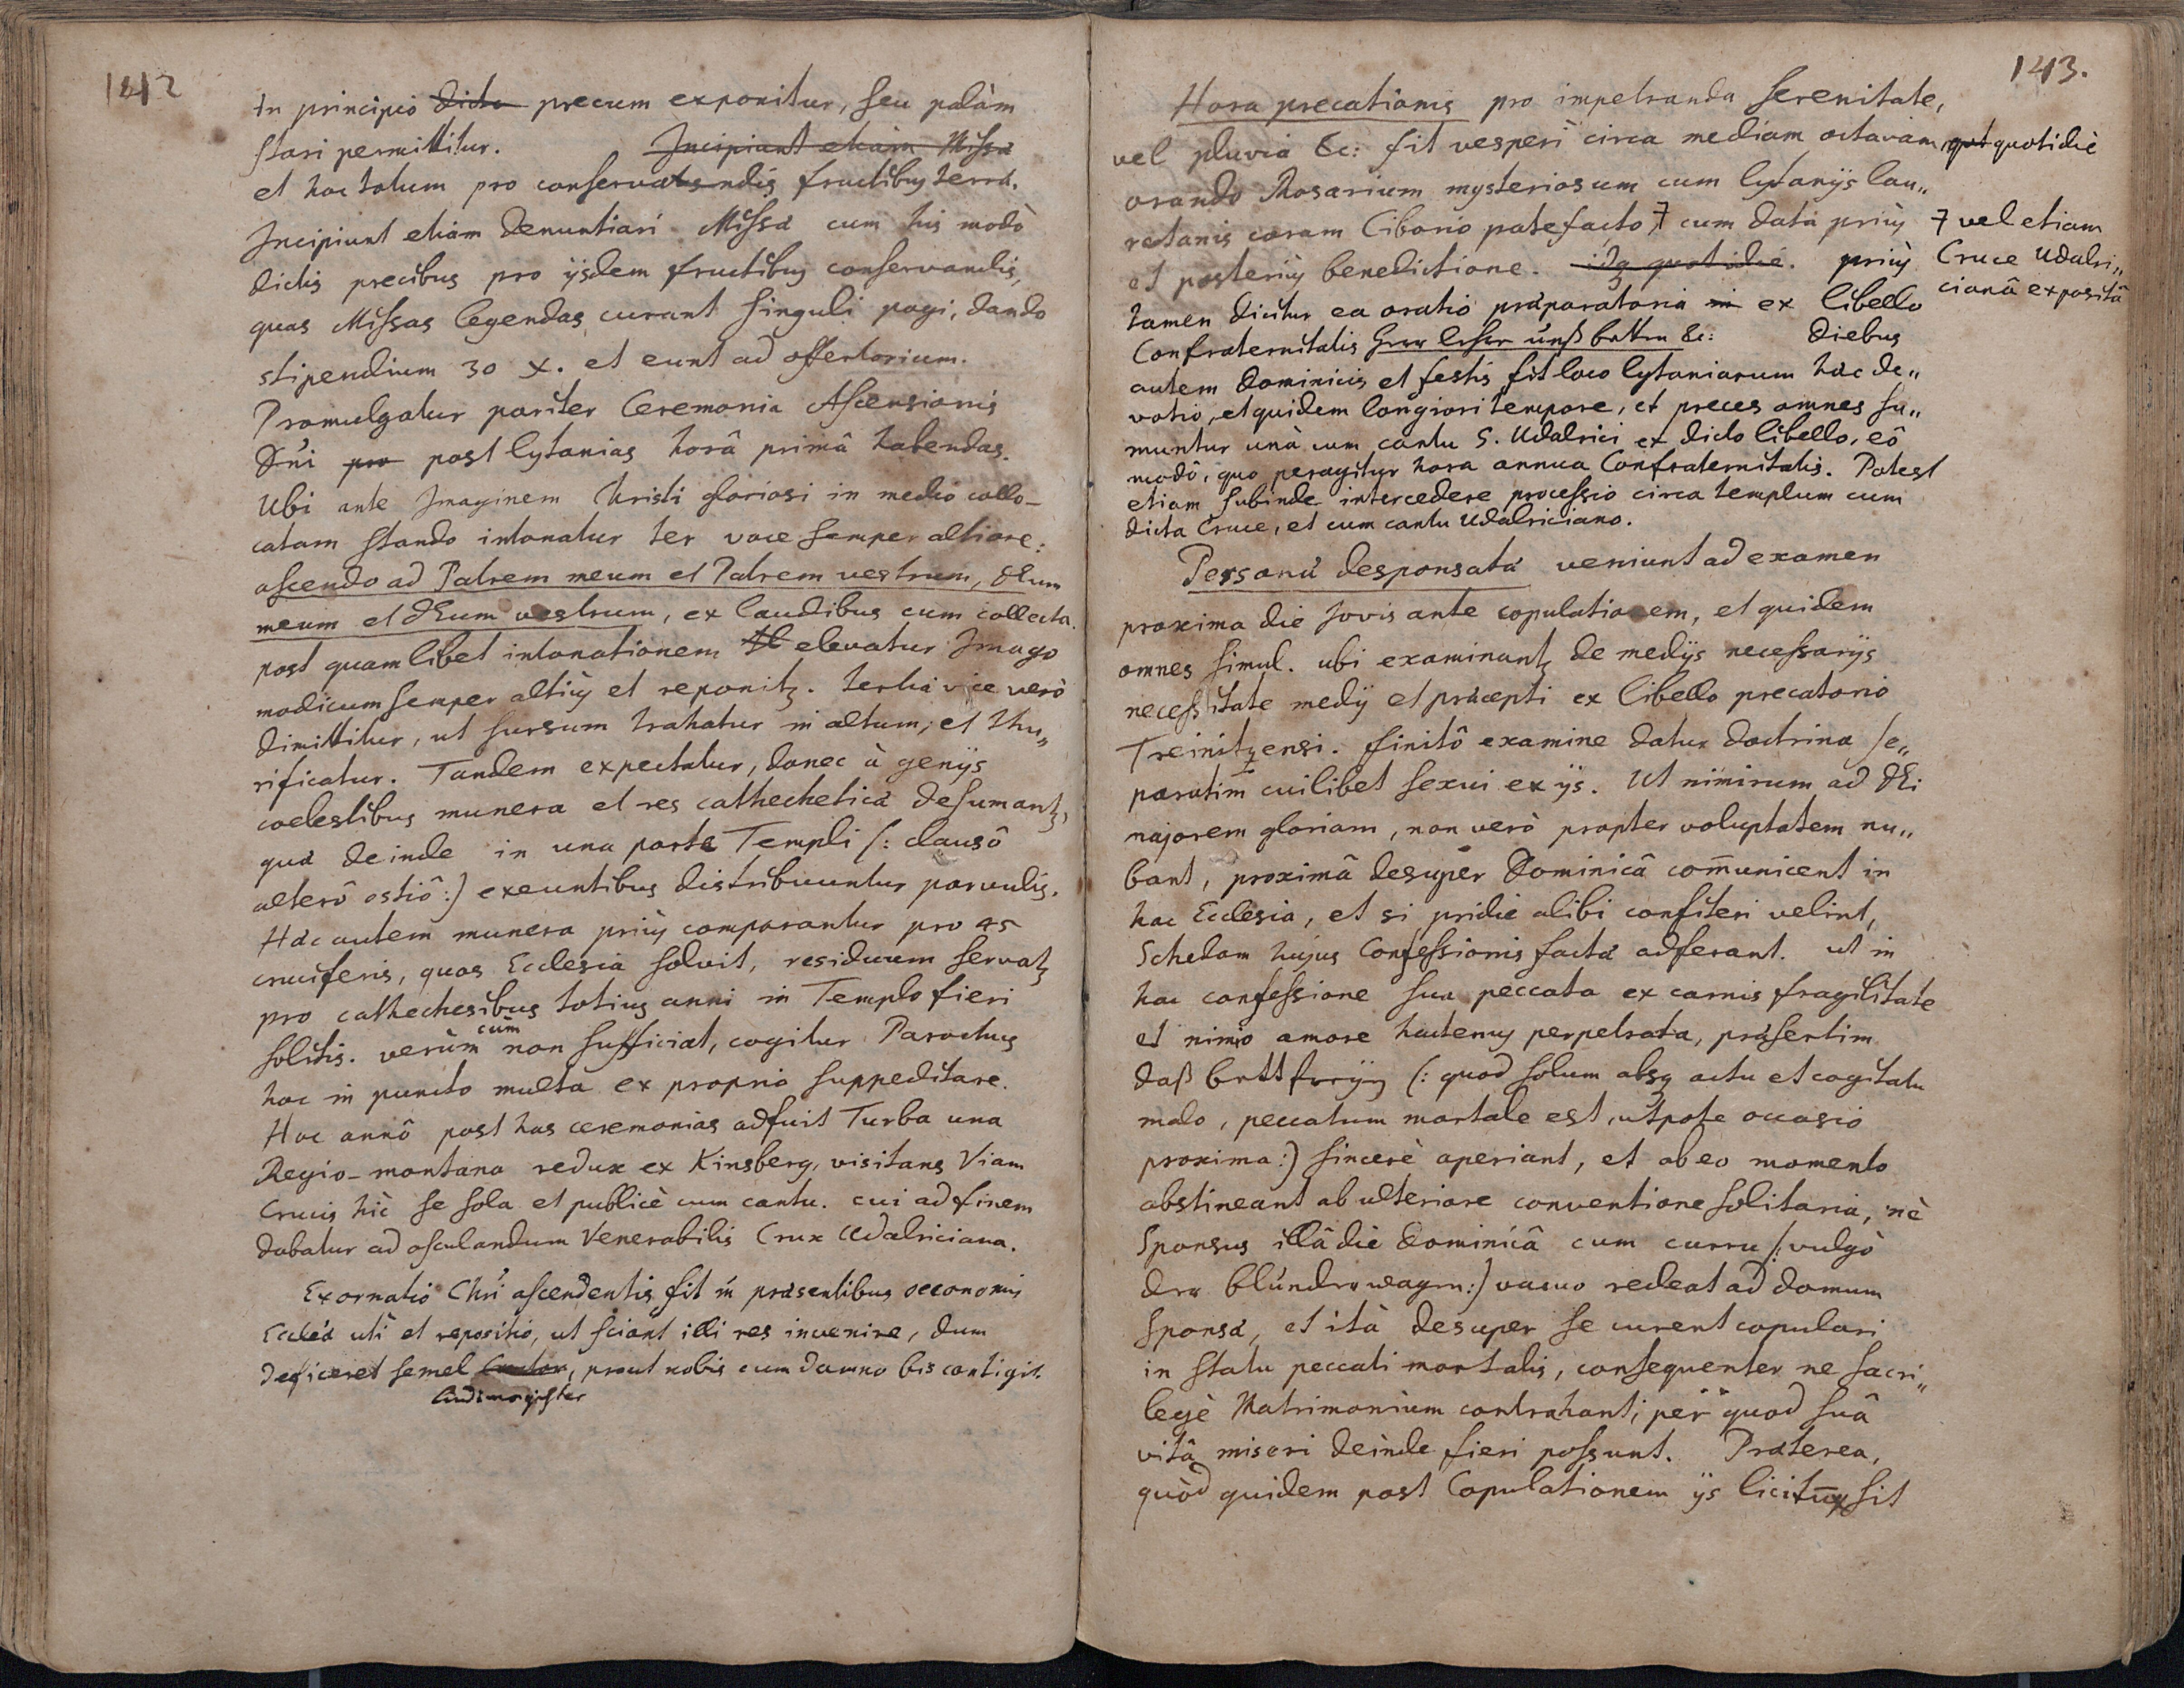 142
In principio dicta precum exponitur, seu palàm
stari permittitur. Incipiunt etiàm Missæ
et hoc totum pro conservatandis fructibus terræ.
Incipiunt etiàm denuntiari Missæ cum his modò
dictis precibus pro ijsdem fructibus conservandis,
quas Missas legendas curant singuli pagi, dando
stipendium 30 x. et eunt ad offertorium.
Promulgatur pariter Ceremonia Ascensionis
Dńi pro post lytanias horâ primâ habendas.
Ubi ante Imaginem Christi gloriosi in medio collo-
catam stando intonatur ter voce semper altiore:
ascendo ad Patrem meum et Patrem vestrum, DEum
meum et DEum vestrum, ex laudibus cum collecta.
post quamlibet intonationem elevatur Imago
modicum semper altiùs et reponitꝫ. tertiâ vice verò
dimittitur, ut sursum trahatur in altum, et thu„
rificatur. Tandem expectatur, donec à genijs
coelestibus munera et res cathecheticæ desumantꝫ,
quæ deinde in una porta Templi /: clausô
alterô ostiô :/ exeuntibus distribuuntur parvulis.
Hæc autem munera priùs comparantur pro 45
cruciferis, quos Ecclesia solvit, residuum servatꝫ
pro cathechesibus totius anni in Templo fieri
solitis. verùm cùm non sufficiat, cogitur Parochus
hoc in puncto multa ex proprio suppeditare.
Hoc annô post has ceremonias adfuit Turba una
Regio-montana redux ex Kinsberg, visitans Viam
Crucis hìc se sola et publicè cum cantu. cui ad finem
dabatur ad osculandum Venerabilis Crux Udalriciana.
Exornatio Chri ascendentis fit in præsentibus oeconomis
Eccl'æ uti et repositio, ut sciant illi res invenire, dum
deficeret semel Cantor, prout nobis cum damno bis contigit.
Ludimagister
143.
Hora precationis pro impetranda serenitate,
vel pluvia &c: fit vesperi circa mediam octavam, quotidiè
orando Rosarium mysteriosum cum lytanijs lau„
retanis coram Ciborio patefacto, 7 cum data priùs
7 vel etiam
Cruce Udalri„
cianâ expositâ
et posteriùs benedictione. idꝫ quotidiè. priùs
tamen dicitur ea oratio præparatoria in ex libello
Confraternitatis Herr lehre unß betten &c: diebus
autem dominicis et festis fit loco lytaniarum hæc de„
votio, et quidem longiori tempore, et preces omnes su„
muntur unà cum cantu S. Udalrici ex dicto libello, eô
modô, quo peragitur hora annua Confraternitatis. Potest
etiam subinde intercedere processio circa templum cum
dicta Cruce, et cum cantu Udalriciano.
Personæ desponsatæ veniunt ad examen
proxima die Jovis ante copulationem, et quidem
omnes simul. ubi examinantꝫ de medijs necessarijs
necessitate medij et præcepti ex libello precatorio
Treinitzensi. finitô examine datur doctrina se„
paratim cuilibet sexui ex ijs. Ut nimirum ad DEi
majorem gloriam, non verò propter voluptatem nu„
bant, proximâ desuper Dominicâ com̄unicent in
hac Ecclesia, et si pridie alibi confiteri velint,
Schedam hujus Confessionis factæ adferant. ut in
hac confessione sua peccata ex carnis fragilitate
et nimio amore hactenus perpetrata, præsertim
daß bettfreyen /: quod solum absꝫ actu et cogitatu
malo, peccatum mortale est, utpote occasio
proxima :/ sincerè aperiant, et ab eo momento
abstineant ab ulteriore conventione solitaria, nè
Sponsus illâ die Dominicâ cum curru /: vulgò
der blunderwagen :/ vacuo redeat ad domum
Sponsæ, et ità desuper se curent copulari
in statu peccati mortalis, consequenter ne sacri„
legè Matrimonium contrahant, per quod suâ
vitâ miseri deinde fieri possunt. Præterea,
quòd quidem post Copulationem ijs licitum sit